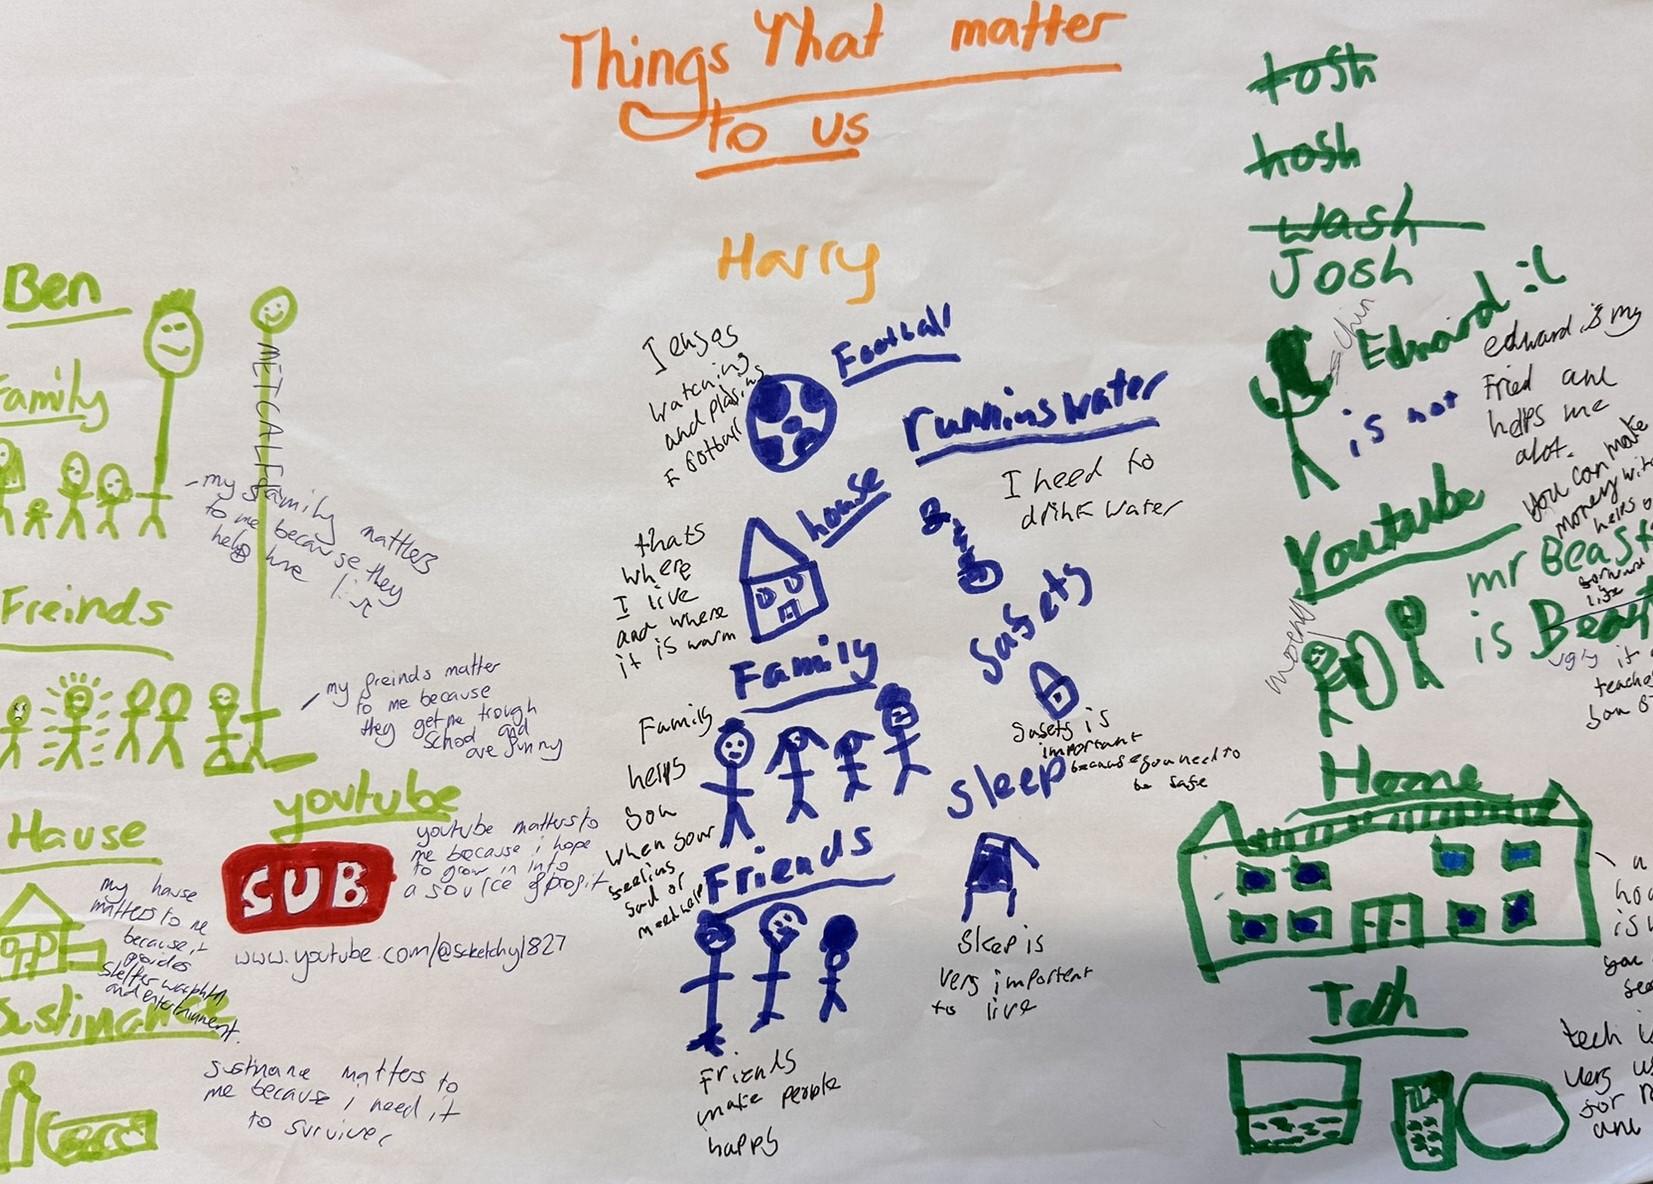 Things That matter
to us
Ben
Family
my family matters
to me because they
help live
METCALF
Freinds
my freinds matter
to me because
they get me trough
school and
are funny
Hause
my hause
matters to me
because it
provides
shelter
and entertainment.
youtube
youtube matters to
me because i hope
to grow in into
a source of profit
SUB
www.youtube.com/@scketchy1827
Sustinance
sustinane matters to
me because i need it
to survive
Harry
Football
I enjoy
watching
and playing
football
running water
I need to
drink water
house
thats
where
I live
and where
it is warm
Safety
Safety is
important
because you need to
be safe
Family
Family
helps
you
when your
feeling
sad or
need help
sleep
Sleep is
very important
to live
Friends
Friends
make people
happy
tosh
hosh
wash
Josh
Edward :(
chin
is not
edward is my
Fried and
helps me
alot.
Youtube
you can make
money
helps
mr Beast
is Beast
ugly it
life
money
Home
is
Tech
tech is
very
for
and